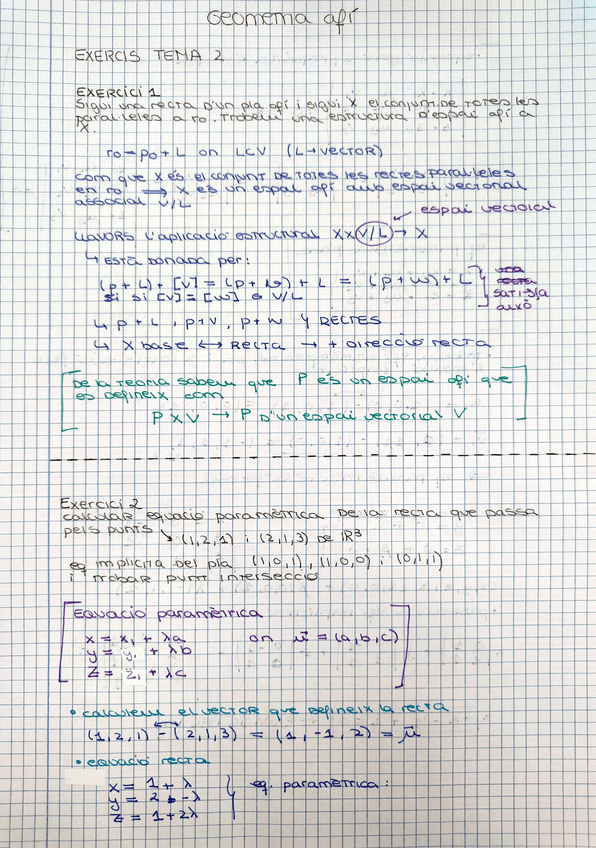 Geometria afí
EXERCIS TEMA 2
EXERCICI 1
Sigui una recta D'un pla afí i sigui X el conjunt DE TOTES les
paral·leles a r0. Trobem una estructura D'espai afí a
X.
r0 = p0 + L on L⊂V (L→VECTOR)
com que X és el conjunt DE TOTES les rectes paral·leles
en r0 ⟹ X és un espai afí amb espai vectorial
associat V/L
espai vectorial
LLAVORS l'aplicació estructural X×(V/L)→ X
↳ ESTÀ DONADA per:
(p + L) + [v] = (p + v) + L = (p + w) + L
si si [v] = [w] ∈ V/L
satisfa
això
↳ p + L , p + v , p + w } RECTES
↳ X base ⟷ RECTA → + DIRECCIÓ RECTA
De la teoria sabem que P és un espai afí que
es defineix com
P × V → P D'un espai vectorial V
Exercici 2
calcular equació paramètrica DE la recta que passa
pels punts ↘ (1,2,1) i (2,1,3) DE IR³
eq implícita Del pla (1,0,1), (1,0,0) i (0,1,1)
i trobar punt intersecció
Equació paramètrica
x = x1 + λa on u⃗ = (a,b,c)
y = y1 + λb
z = z1 + λc
• calculem el VECTOR que Defineix la recta
(1,2,1) - (2,1,3) = (1,-1,2) = u⃗
• equació recta
x = 1 + λ } eq. paramètrica:
y = 2 - λ
z = 1 + 2λ